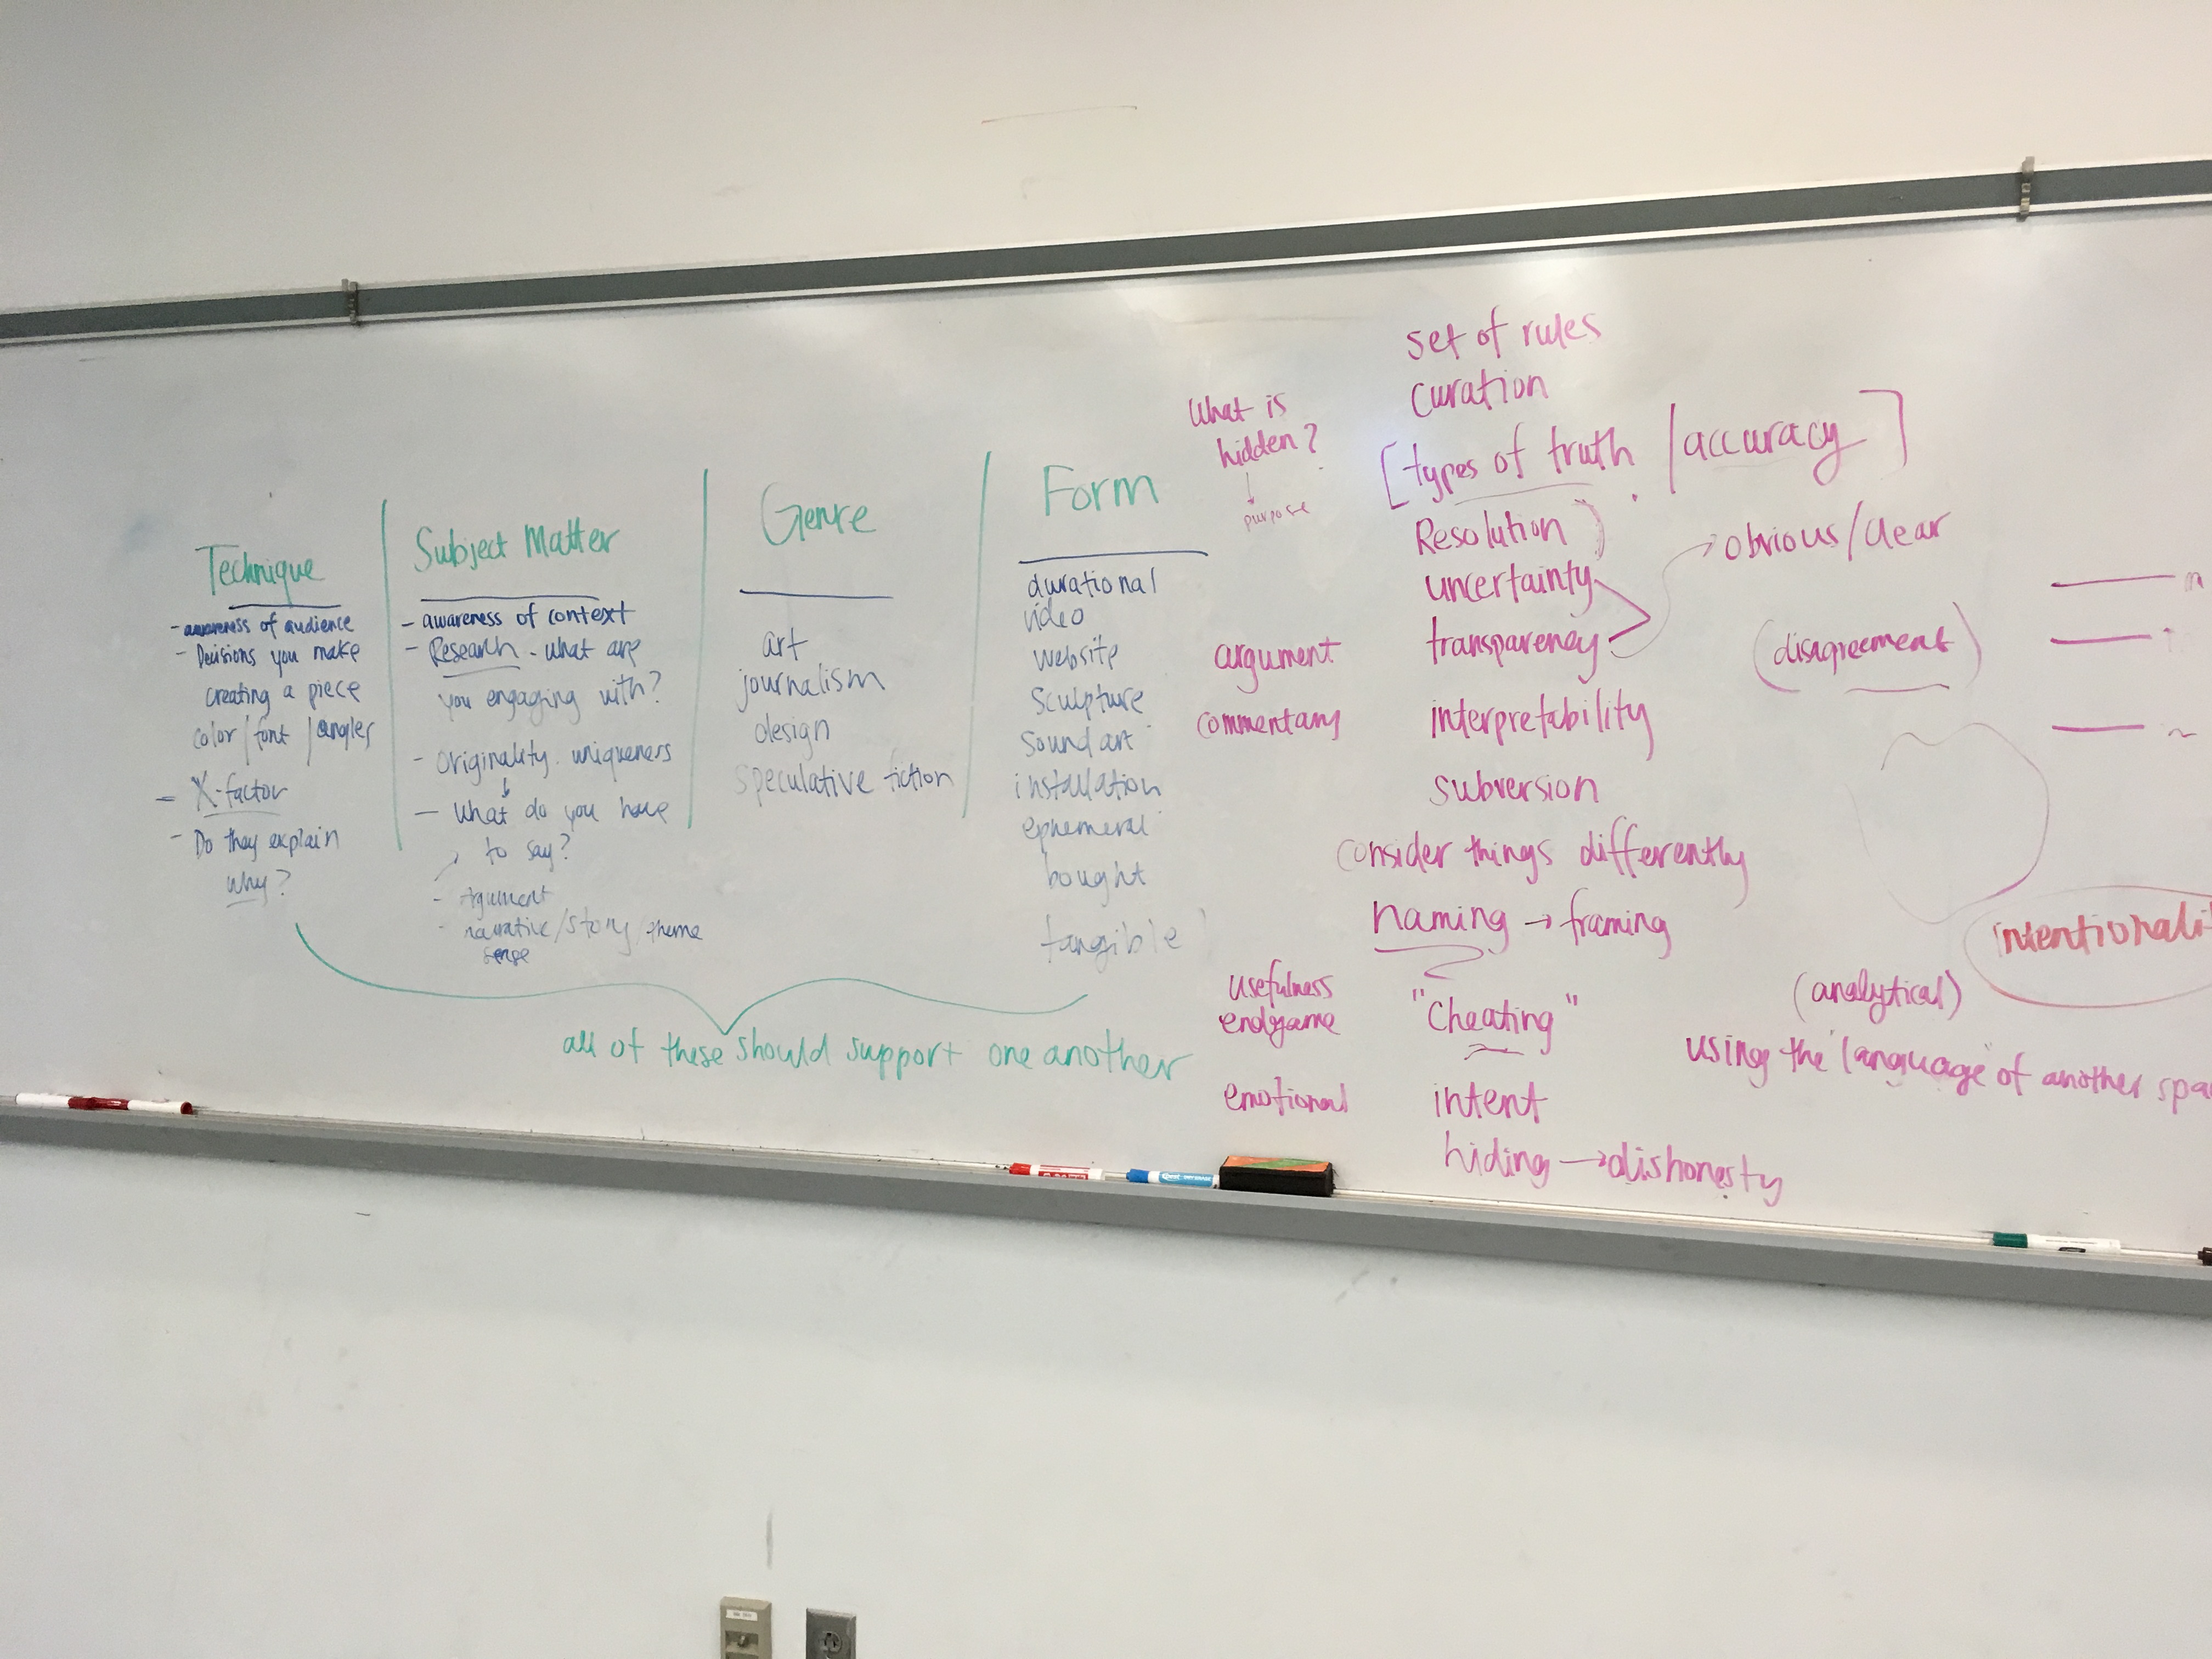 Technique
- awareness of audience
- Decisions you make
creating a piece
color/font/angles
- X-factor
- Do they explain
why?
Subject Matter
- awareness of context
- Research - what are
you engaging with?
- originality. uniqueness
- What do you have
to say?
- argument
- narrative/story/theme
sense
Genre
art
journalism
design
speculative fiction
Form
durational
video
website
sculpture
sound art
installation
ephemeral
bought
tangible
all of these should support one another
What is
hidden?
purpose
argument
commentary
usefulness
endgame
emotional
set of rules
curation
[types of truth /accuracy]
Resolution
uncertainty
transparency
interpretability
subversion
consider things differently
naming → framing
"Cheating"
intent
hiding → dishonesty
obvious/clear
(disagreement)
(analytical)
using the "language" of another